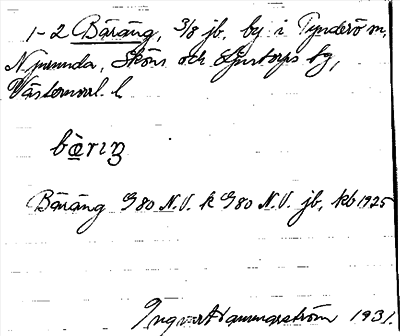 1-2 Bäräng, 3/8 jb. by i Tynderö sn,
Njurunda, Sköns och Ljustorps tg,
Västernorrl. l.
bærıŋ
Bäräng G80 N.V. k G80 N.V. jb, kb 1925
Ingvar Hammarström 1931.